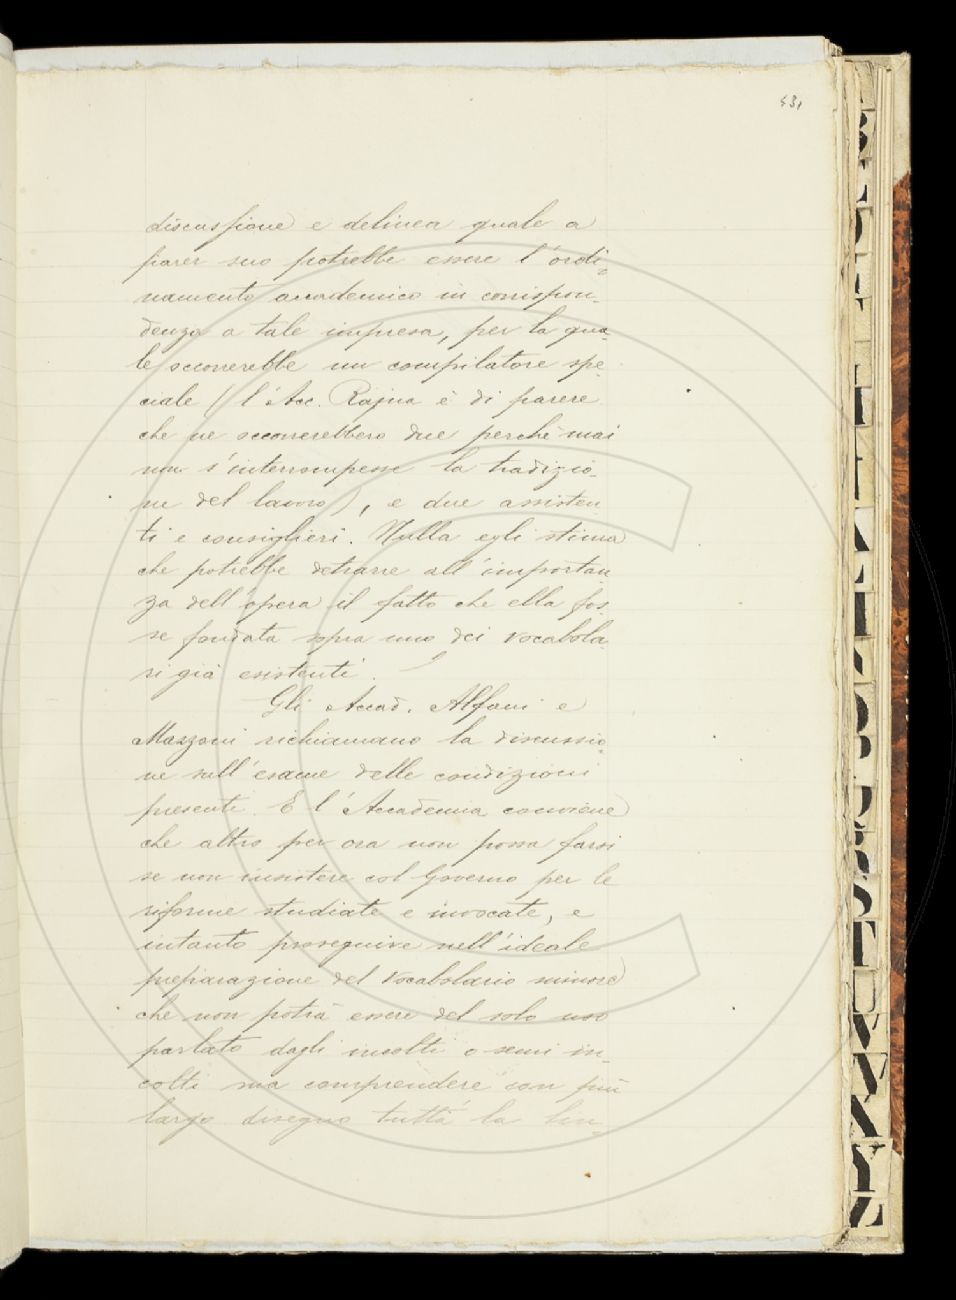 531
discussione e delinea quale a
parer suo potrebbe essere l'ordi-
namento accademico in corrispon-
denza a tale impresa, per la qua-
le occorrerebbe un compilatore spe-
ciale (l'Acc. Rajna è di parere
che ne occorrerebbero due perchè mai
non s'interrompesse la tradizio-
ne del lavoro), e due assisten
ti e consiglieri. Nulla egli stima
che potrebbe detrarre all'importan
za dell'opera il fatto che ella fos
se fondata sopra uno dei vocabola-
ri già esistenti.
Gli Accad. Alfani e
Mazzoni richiamano la discussio-
ne sull'esame delle condizioni
presenti. E l'Accademia conviene
che altro per ora non possa farsi
se non insistere col Governo per le
riforme studiate e invocate, e
intanto proseguire nell'ideale
preparazione del Vocabolario minore
che non potrà essere del solo uso
parlato dagli incolti o semi in-
colti ma comprendere con più
largo disegno tutta la lin-